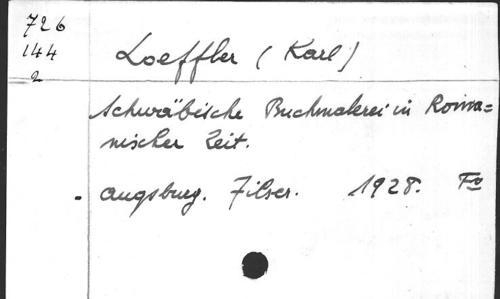 726
144
2
Loeffler (Karl)
Schwäbische Buchmalerei in Roma=
nischer Zeit.
Augsburg. Filser. 1928. Fo